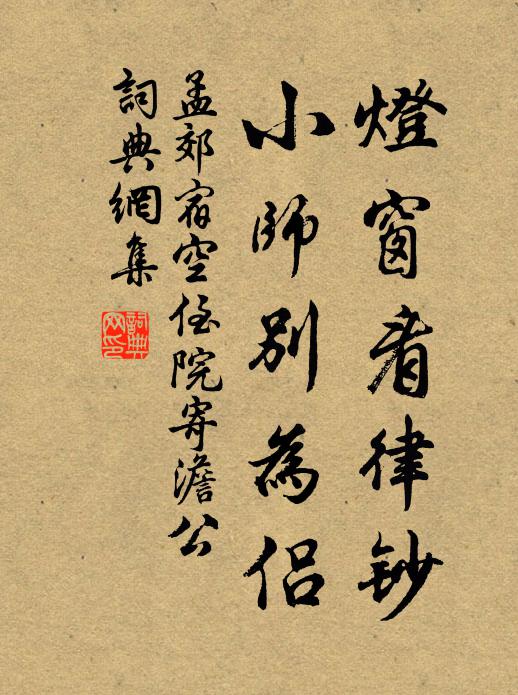 燈窗看律鈔
小師別為侶
孟郊宿空侄院寄澹公
詞典網集
詞典
网印